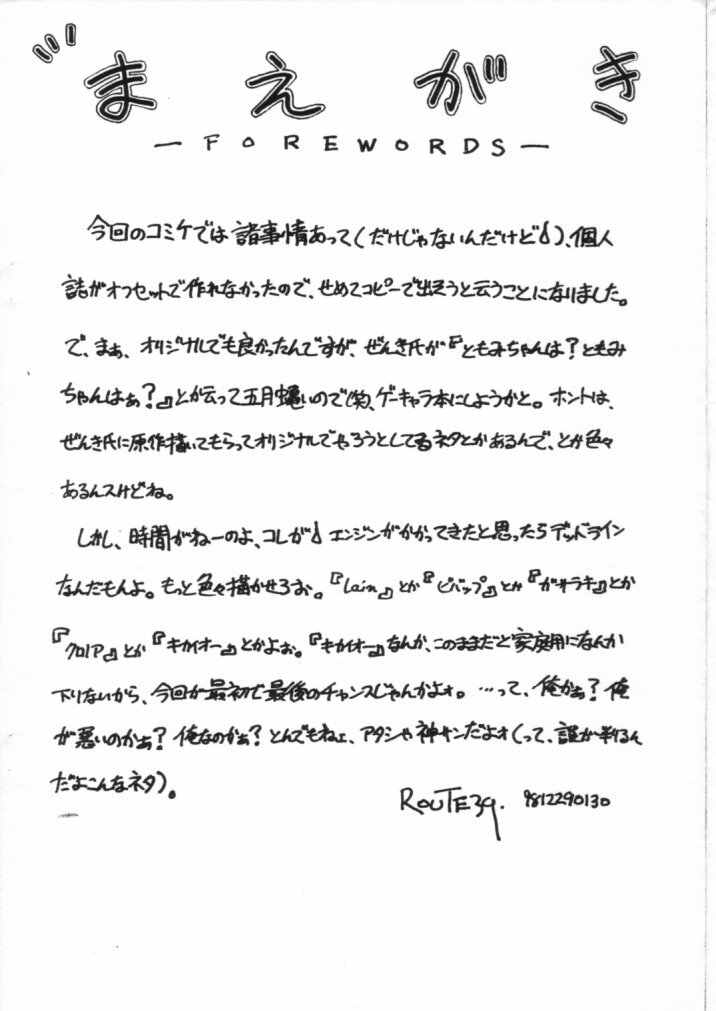 まえがき
—FOREWORDS—
今回のコミケでは諸事情あって(だけじゃないんだけど)、個人
誌がオフセットで作れなかったので、せめてコピーで出そうと云うことになりました。
で、まぁ、オリジナルでも良かったんですが、ぜんき氏が『ともみちゃんは?ともみ
ちゃんはぁ?』とか云って五月蠅いので(笑)、ゲーキャラ本にしようかと。ホントは、
ぜんき氏に原作描いてもらってオリジナルでやろうとしてるネタとかあるんで、とか色々
あるんスけどね。
しかし、時間がねーのよ、コレが エンジンがかかってきたと思ったらデッドライン
なんだもんよ。もっと色々描かせろぉ。『lain』とか『ビバップ』とか『ガサラキ』とか
『クロノア』とか『キカイオー』とかよぉ。『キカイオー』なんか、このままだと家庭用になんか
下りないから、今回が最初で最後のチャンスじゃんかよォ。…って、俺かぁ?俺
が悪いのかぁ?俺なのかぁ?とんでもねェ、アタシャ神サンだよォ(って、誰が判るん
だよこんなネタ)。
ROUTE39. 9812290130